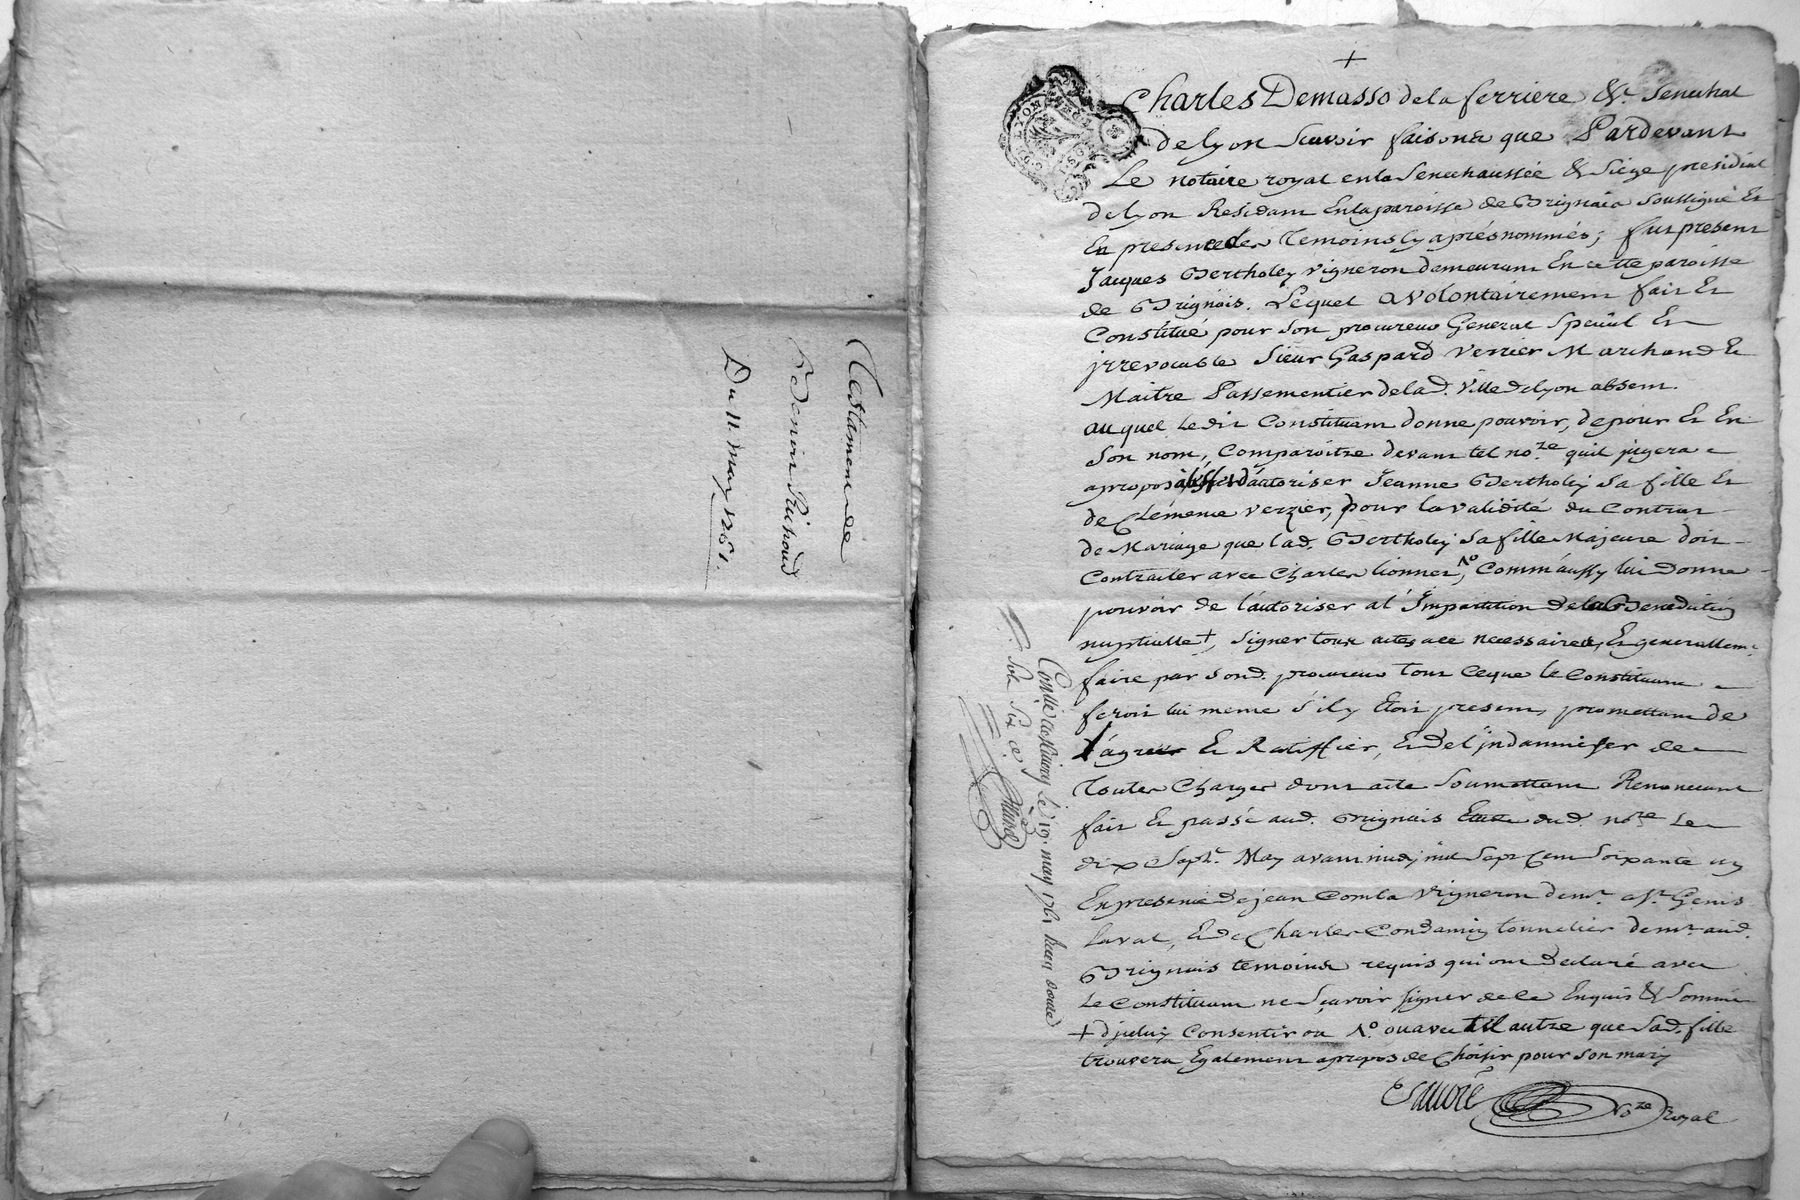 Testament de
Benoit Richoud
Du 11. May 1761.
+
Charles Demasso de la ferriere &c. Senechal
de Lyon Scavoir faisons que Pardevant
Le notaire royal en la Senechaussée & Siége presidial
de Lyon Residant En la paroisse de Brignais soussigné Et
En presence des Temoins Cy aprés nommés; fut present
Jacques Bertholey vigneron demeurant En cette paroisse
de Brignais. Lequel a volontairement fait Et
Constitué pour son procureur General Special Et
jrrevocable Sieur Gaspard Verzier Marchand Et
Maitre Passementier de lad. Ville de Lyon absent.
au quel Ledit Constituant donne pouvoir, de pour Et En
Son nom, Comparoitre devant tel no.re quil jugera
apropos d'autoriser Jeanne Bertholey sa fille Et
de Clémence Verzier, pour la validité du Contrat
de Mariage que lad. Bertholey sa fille Majeure doit
Contracter avec Charles Lionnet, Comm'aussy lui Donne
pouvoir de l'autoriser a l'Impartition de la Benediction
nuptialle +, Signer tous actes a ce necessaires, Et generallemt.
faire par sond. procureur tout Ceque le Constituant
feroit lui meme s'il y Etoit present, promettant de
l'agréer Et Ratiffier, Et de l'jndamniser de
Toutes Charges dont acte Soumettant Renonceant
fait Et passé aud. Brignais Etude dud. no.re Le
dix Sept.e May avant midy mil Sept Cent Soixante un
En presence de jean Combla Vigneron demt. a St. Genis
Laval, Et de Charles Condamin tonnelier demt. aud.
Brignais temoins requis qui ont Declaré avec
Le Constituant ne Scavoir signer de ce Enquis & Sommé
+ d'jceluy Consentir ou No. ou avec tel autre que Sad. fille
trouvera Egalement apropos de Choisir pour son mary
Sauore No.re Royal
Con.lé a St. Le 19. may 1761. Recu douze
s. Six d.